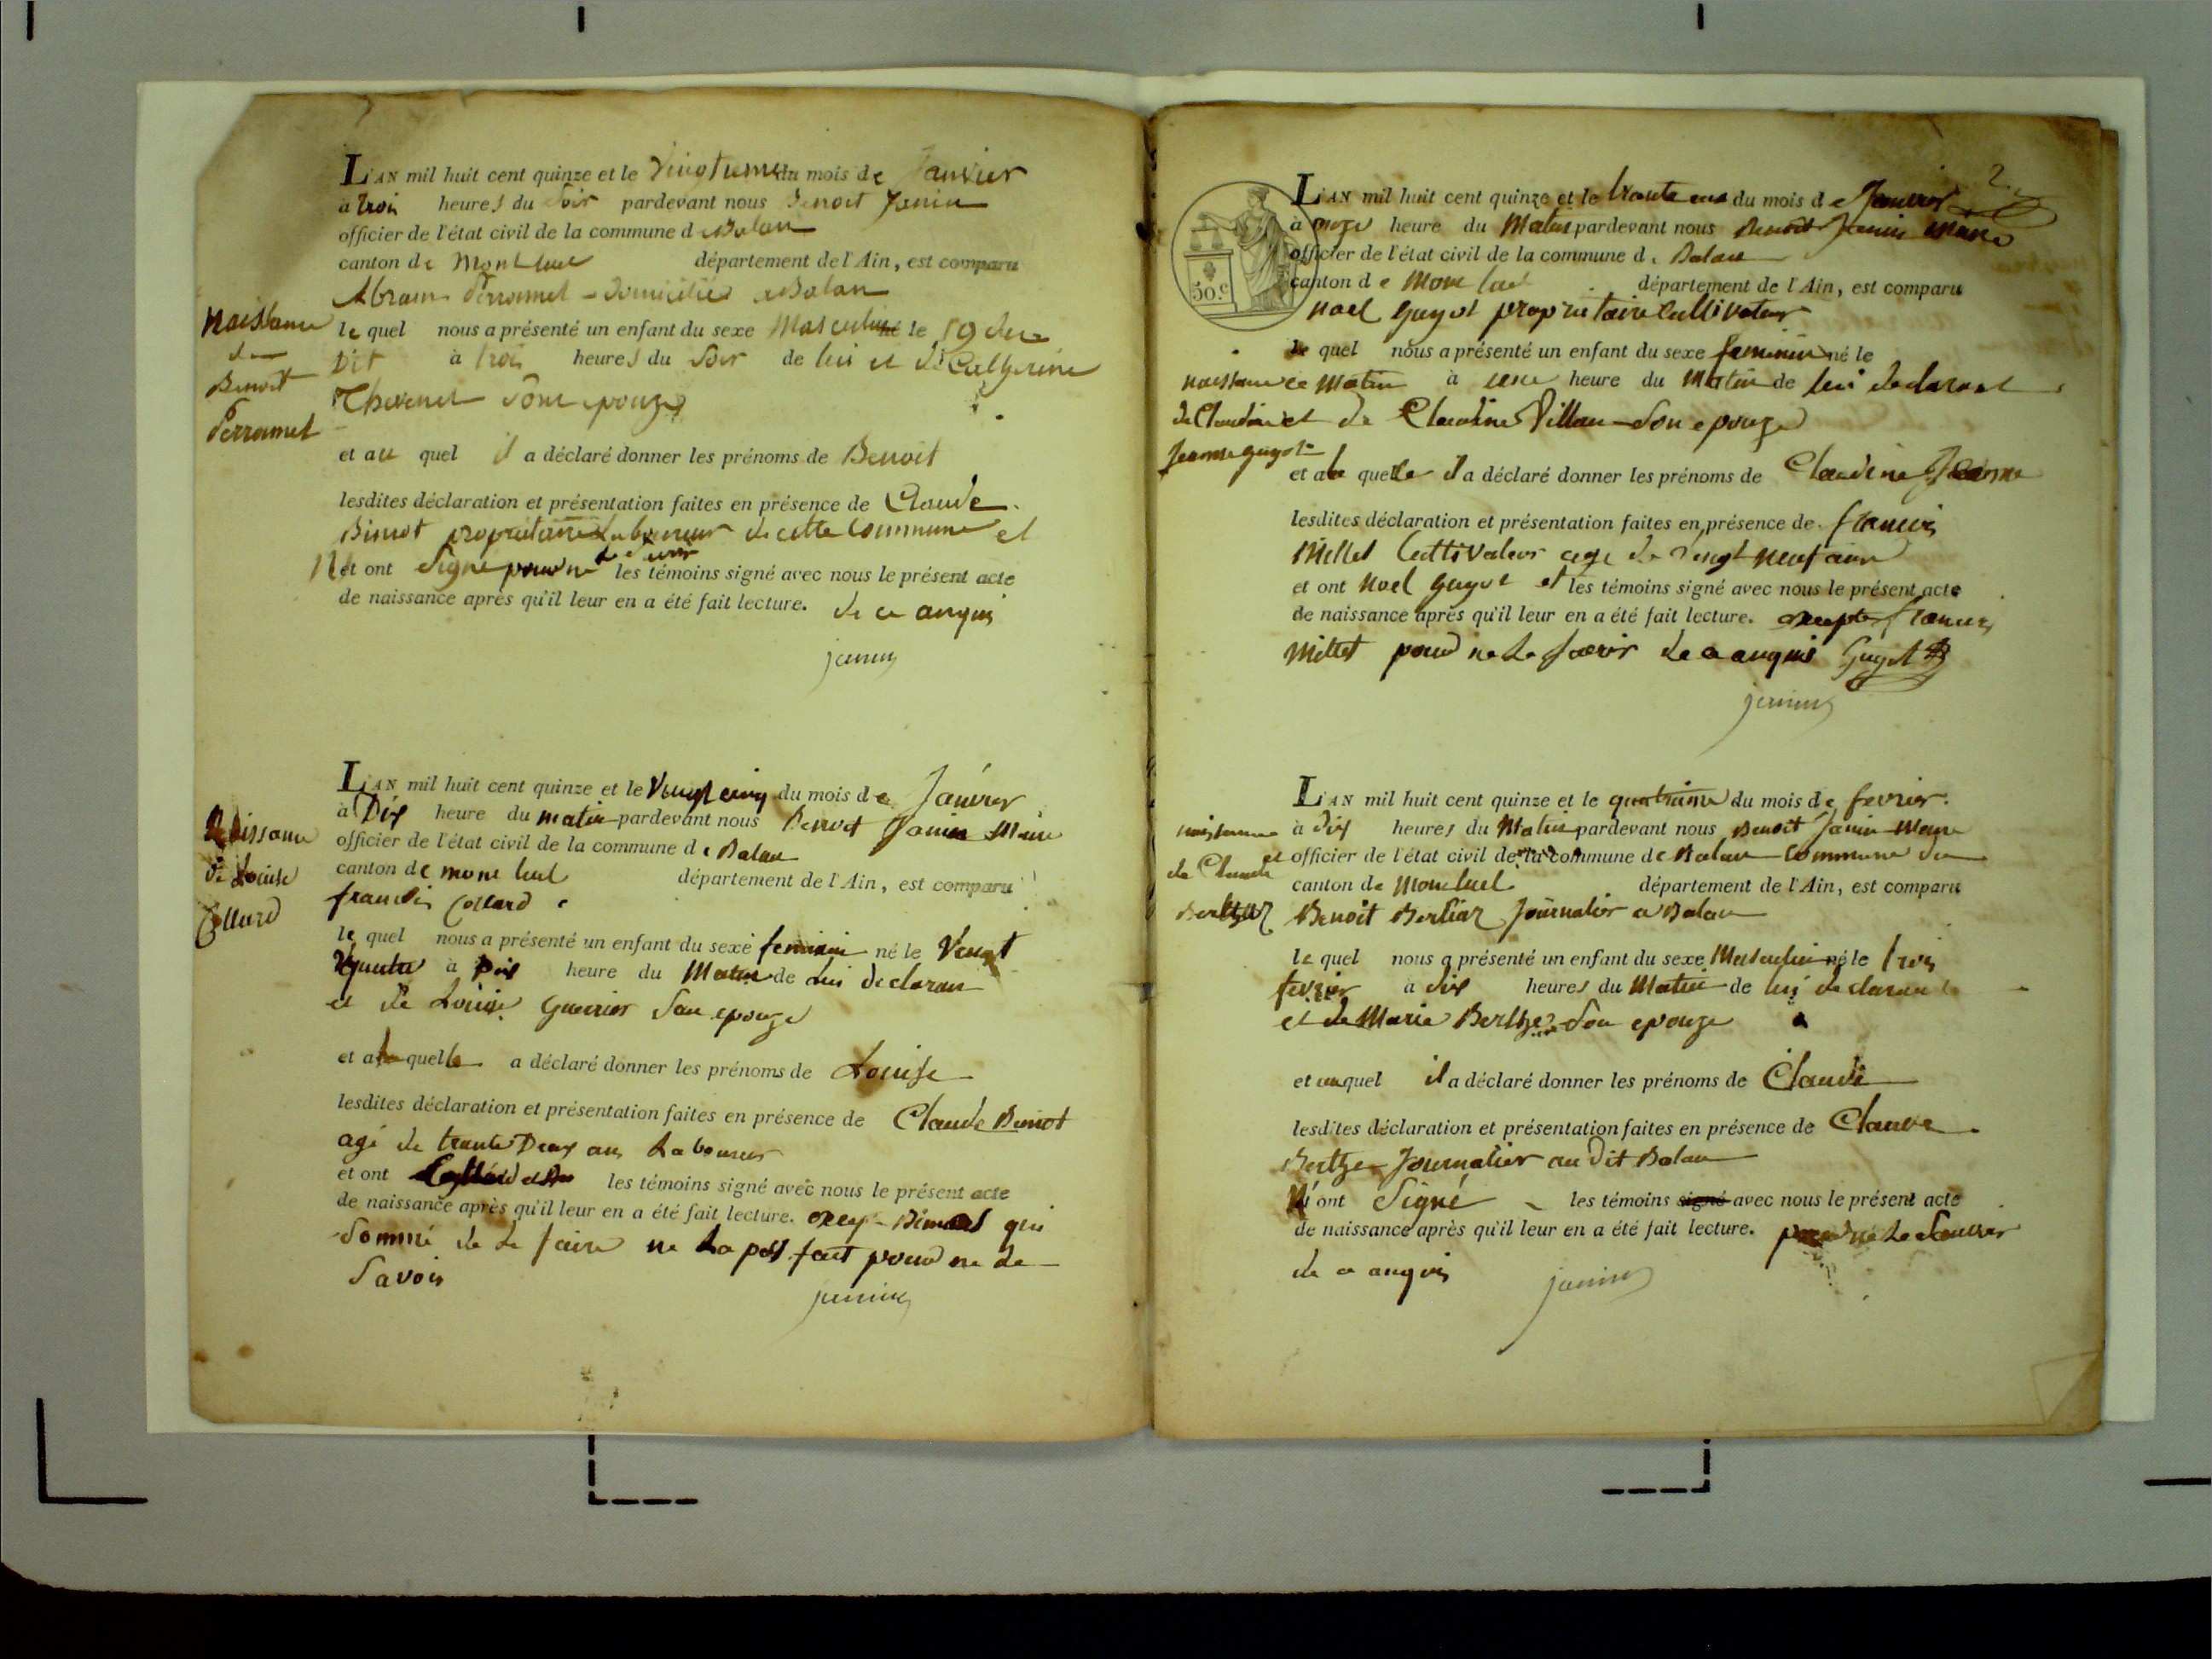 L'AN mil huit cent quinze et le vingtieme du mois de Janvier
à trois heures du soir pardevant nous Benoit Janin
officier de l'état civil de la commune de Balan
canton de Montluel département de l'Ain, est comparu
Abram Perramel domicilié a Balan
Naissance
de
Benoit
Perramel
le quel nous a présenté un enfant du sexe Masculin né le 19 du
Dit à trois heures du Soir de lui et de Catherine
Thevenet Son epouze
et au quel il a déclaré donner les prénoms de Benoit
lesdites déclaration et présentation faites en présence de Claude
Bimot propriétaire Laboureur de cette Commune et
N'et ont Signé pour ne le savoir les témoins signé avec nous le présent acte
de naissance après qu'il leur en a été fait lecture. de ce anquis
janin
L'AN mil huit cent quinze et le Vingt cinq du mois de Janvier
à Dix heure du matin pardevant nous Benoit Janin Maire
officier de l'état civil de la commune de Balan
canton de mont luel département de l'Ain, est comparu
francois Collard
Naissance
de Louise
Collard
le quel nous a présenté un enfant du sexe feminin né le Vingt
quatre à Dix heure du Matin de Lui declaran
et de Louise Guerrier Son epouze
et a la quelle a déclaré donner les prénoms de Louise
lesdites déclaration et présentation faites en présence de Claude Bimot
agé de trante Deux ans Laboureur
et ont les témoins signé avec nous le présent acte
de naissance après qu'il leur en a été fait lecture. Bimot qui
Sommé de Le faire ne La pas fait pour ne Le
Savoir
janin
2.
L'AN mil huit cent quinze et le trante un du mois de Janvier
à onze heure du Matin pardevant nous Benoit Janin Maire
officier de l'état civil de la commune de Balan
canton de Mont luel département de l'Ain, est comparu
50.c
Noel Guyot propriétaire Cultivateur
le quel nous a présenté un enfant du sexe feminin né le
ce Matin à une heure du Matin de lui declarant
et de Claudine Villan Son epouze
naissance
de Claudine
Jeanne Guyot
et a la quelle il a déclaré donner les prénoms de Claudine Jeanne
lesdites déclaration et présentation faites en présence de francois
Millet Cultivateur agé de Vingt neuf ans
et ont Noel Guyot et les témoins signé avec nous le présent acte
de naissance après qu'il leur en a été fait lecture. excepté francois
Millet pour ne Le savoir de ce anquis Guyot
janin
L'AN mil huit cent quinze et le quatrieme du mois de fevrier
à dix heures du Matin pardevant nous Benoit Janin Maire
officier de l'état civil de la commune de Balan Commune du
canton de Montluel département de l'Ain, est comparu
Benoit Berliaz Journalier a Balan
naissance
de Claude
le quel nous a présenté un enfant du sexe Masculin né le trois
fevrier à dix heures du Matin de lui declarant
et de Marie Berthe Son epouze
et au quel il a déclaré donner les prénoms de Claude
lesdites déclaration et présentation faites en présence de Claude
Berthe Journalier au Dit Balan
N'ont Signé les témoins signé avec nous le présent acte
de naissance après qu'il leur en a été fait lecture. pour ne Le Savoir
de ce anquis
janin